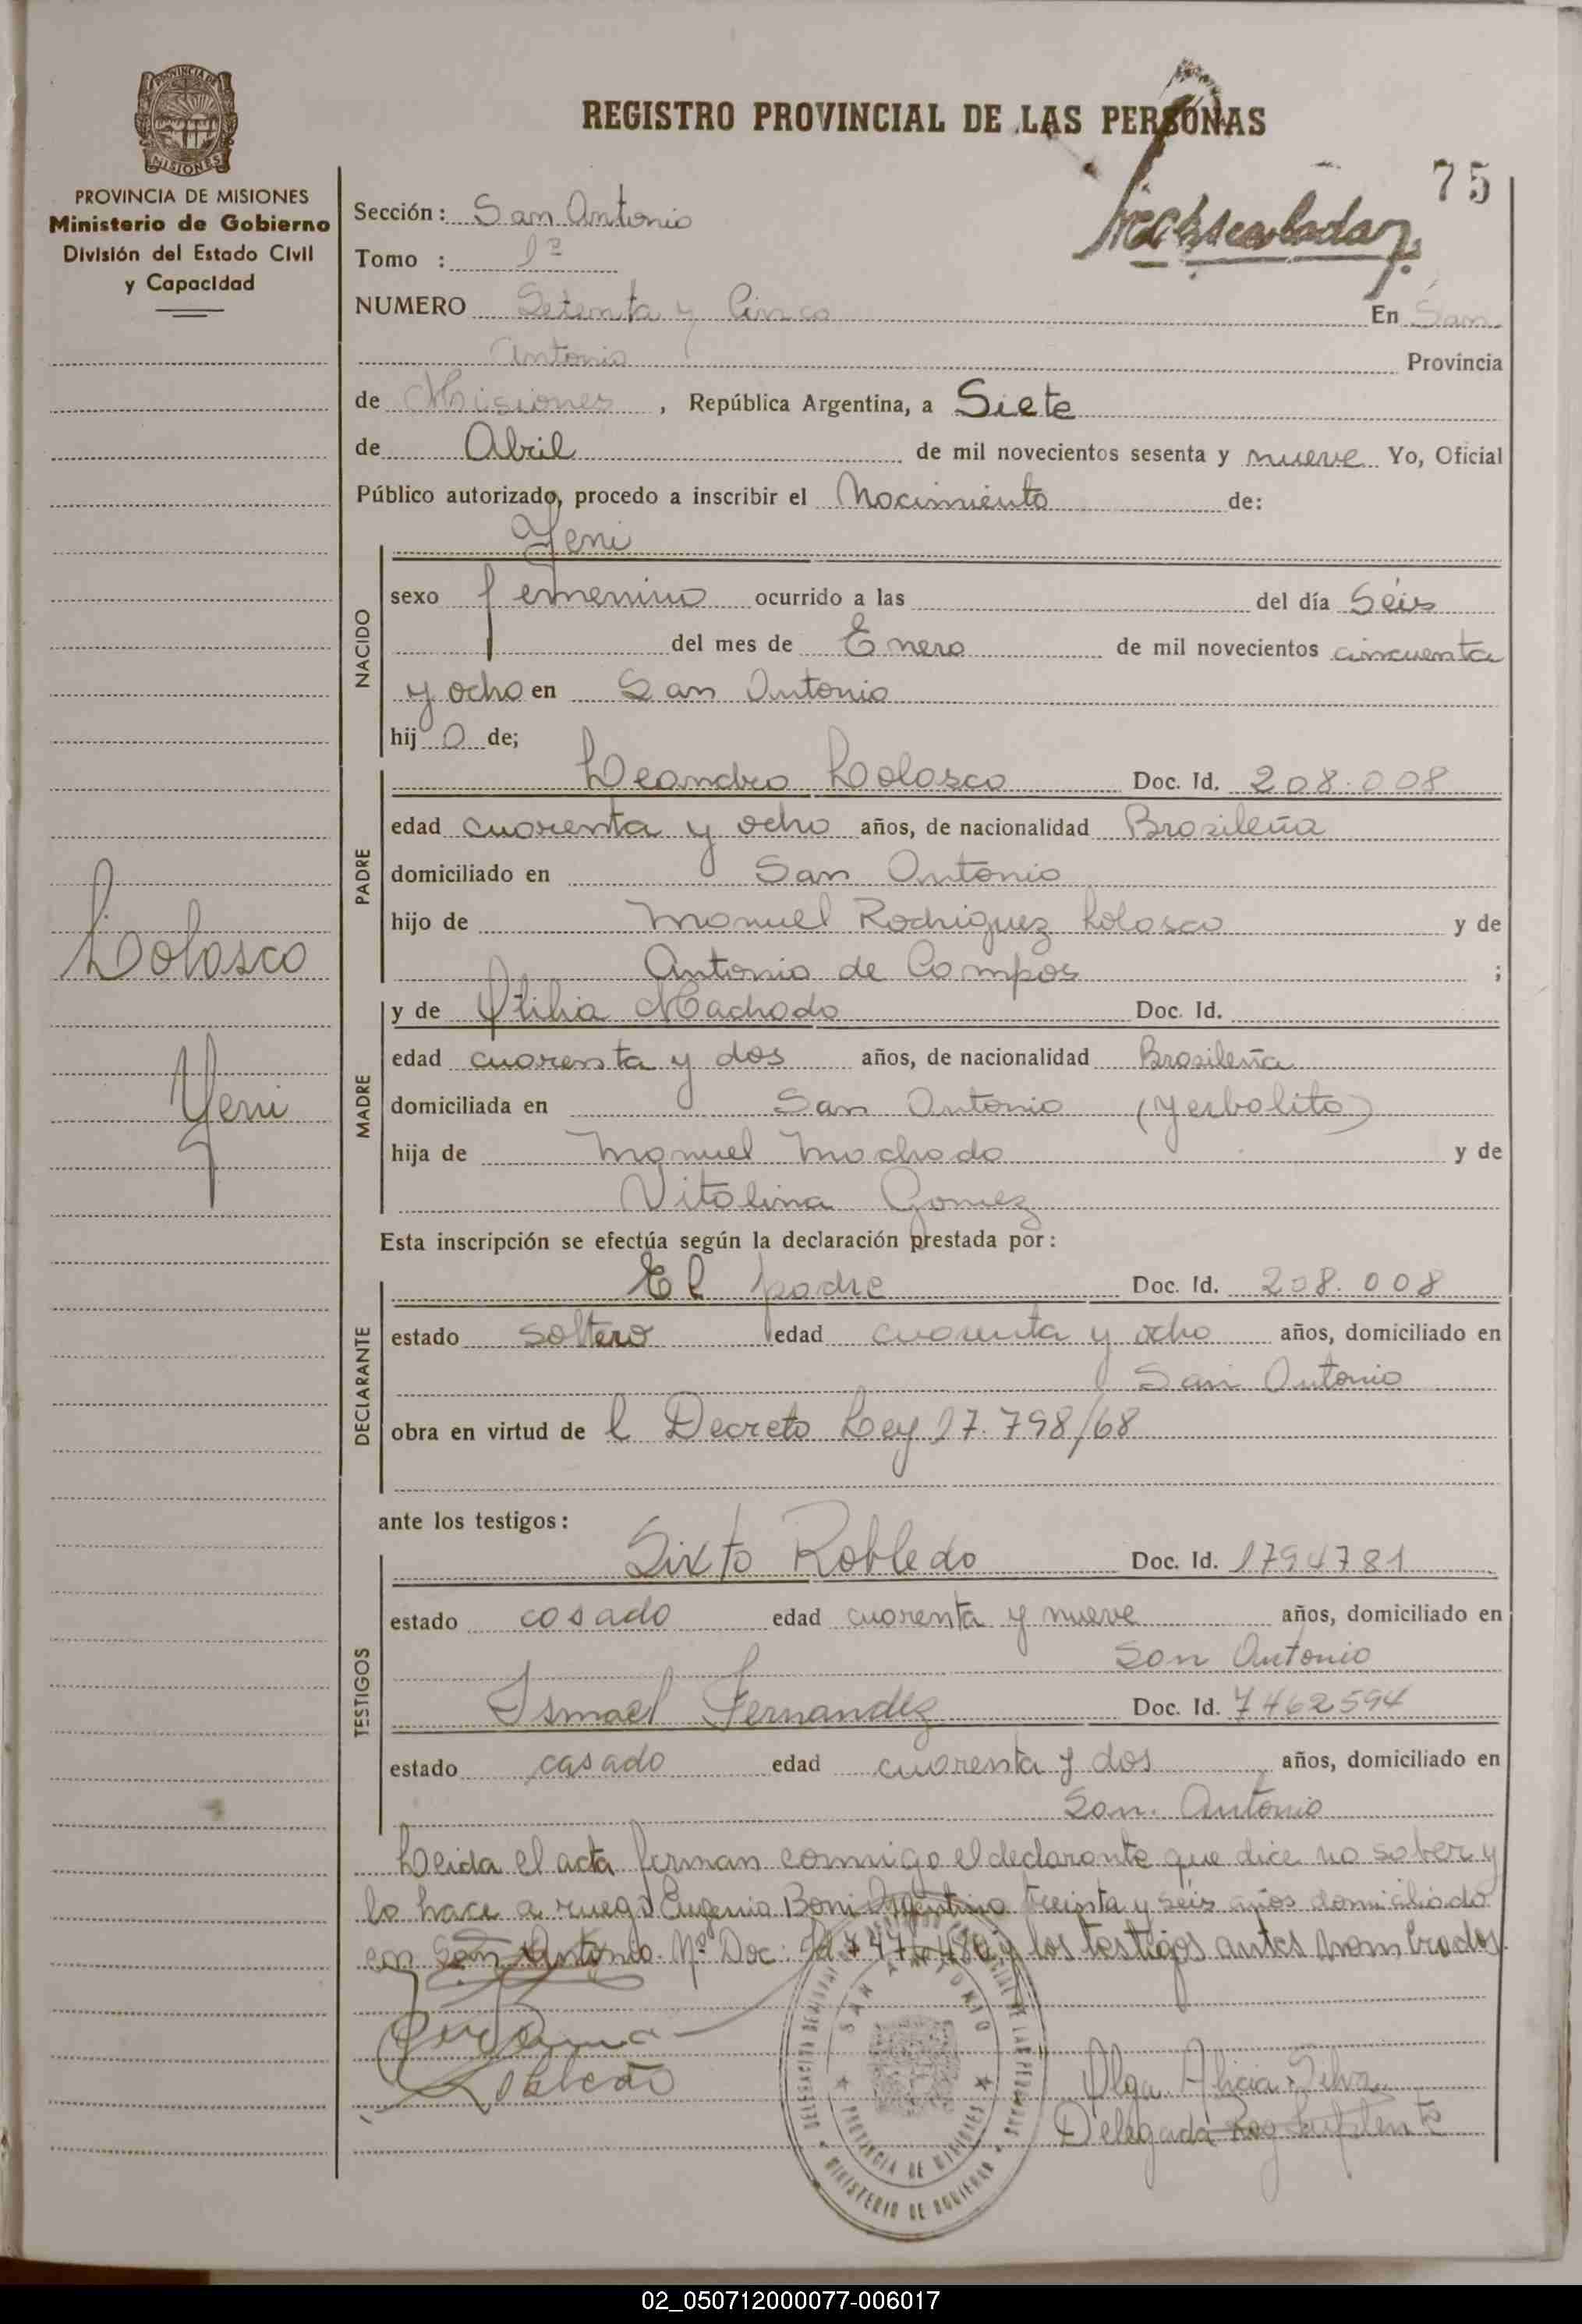 PROVINCIA DE
MISIONES
PROVINCIA DE MISIONES
Ministerio de Gobierno
División del Estado Civil
y Capacidad
REGISTRO PROVINCIAL DE LAS PERSONAS
75
Sección: San Antonio
Tomo : 1º
NUMERO Setenta y Cinco En San
Antonio Provincia
de Misiones, República Argentina, a Siete
de Abril de mil novecientos sesenta y nueve Yo, Oficial
Público autorizado, procedo a inscribir el Nacimiento de:
Yeni
NACIDO
sexo femenino ocurrido a las del día Séis
del mes de Enero de mil novecientos cincuenta
y ocho en San Antonio
hij o de;
PADRE
Leandro Lolasco Doc. Id. 208.008
edad cuarenta y ocho años, de nacionalidad Brasileña
domiciliado en San Antonio
hijo de Manuel Rodriguez Lolasco y de
Antonia de Campos ;
Lolasco
Yeni
MADRE
y de Otilia Machado Doc. Id.
edad cuarenta y dos años, de nacionalidad Brasileña
domiciliada en San Antonio (Yerbalito)
hija de Manuel Machado y de
Vitalina Gomez
Esta inscripción se efectúa según la declaración prestada por:
DECLARANTE
El padre Doc. Id. 208.008
estado soltero edad cuarenta y ocho años, domiciliado en
San Antonio
obra en virtud de l Decreto Ley 17.798/68
ante los testigos:
TESTIGOS
Sixto Robledo Doc. Id. 1794781
estado casado edad cuarenta y nueve años, domiciliado en
San Antonio
Ismael Fernandez Doc. Id. 7462594
estado casado edad cuarenta y dos años, domiciliado en
San Antonio
Leida el acta firman conmigo el declarante que dice no saber y
lo hace a ruego Eugenio Boni Argentino treinta y séis años domiciliado
en San Antonio Nº Doc: y los testigos antes nombrados.
Robledo
SAN ANTONIO
PROVINCIA DE MISIONES
MINISTERIO DE GOBIERNO
Olga Alicia Silva
Delegada Reg Suplente
02_050712000077-006017